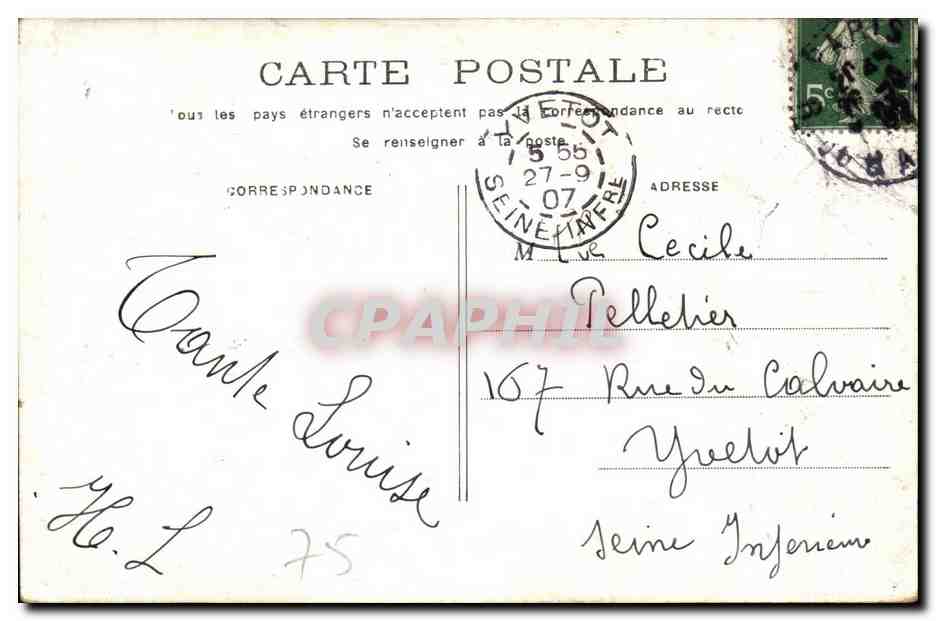 CARTE POSTALE
Tous les pays étrangers n'acceptent pas la correspondance au recto
Se renseigner à la poste
CORRESPONDANCE
ADRESSE
YVETOT
5 55
27-9
07
SEINE INFRE
5c
Tante Louise
H. L
75
Mlle Cécile
Pelletier
167 Rue du Calvaire
Yvetot
Seine Inférieure
CPAPHIL